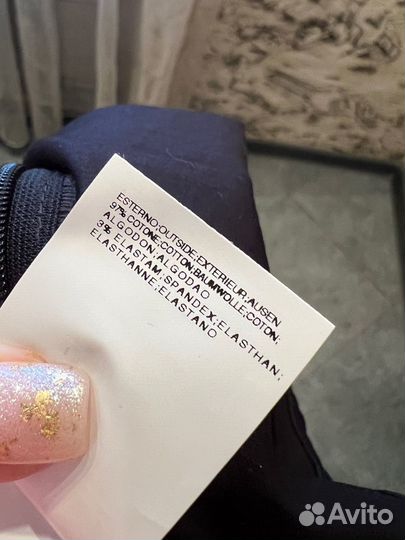 ESTERNO;OUTSIDE;EXTERIEUR;AUSEN
97% COTONE;COTTON;BAUMWOLLE;COTON;
ALGODON;ALGODAO
3% ELASTAM;SPANDEX;ELASTHAN;
ELASTHANNE;ELASTANO
Avito